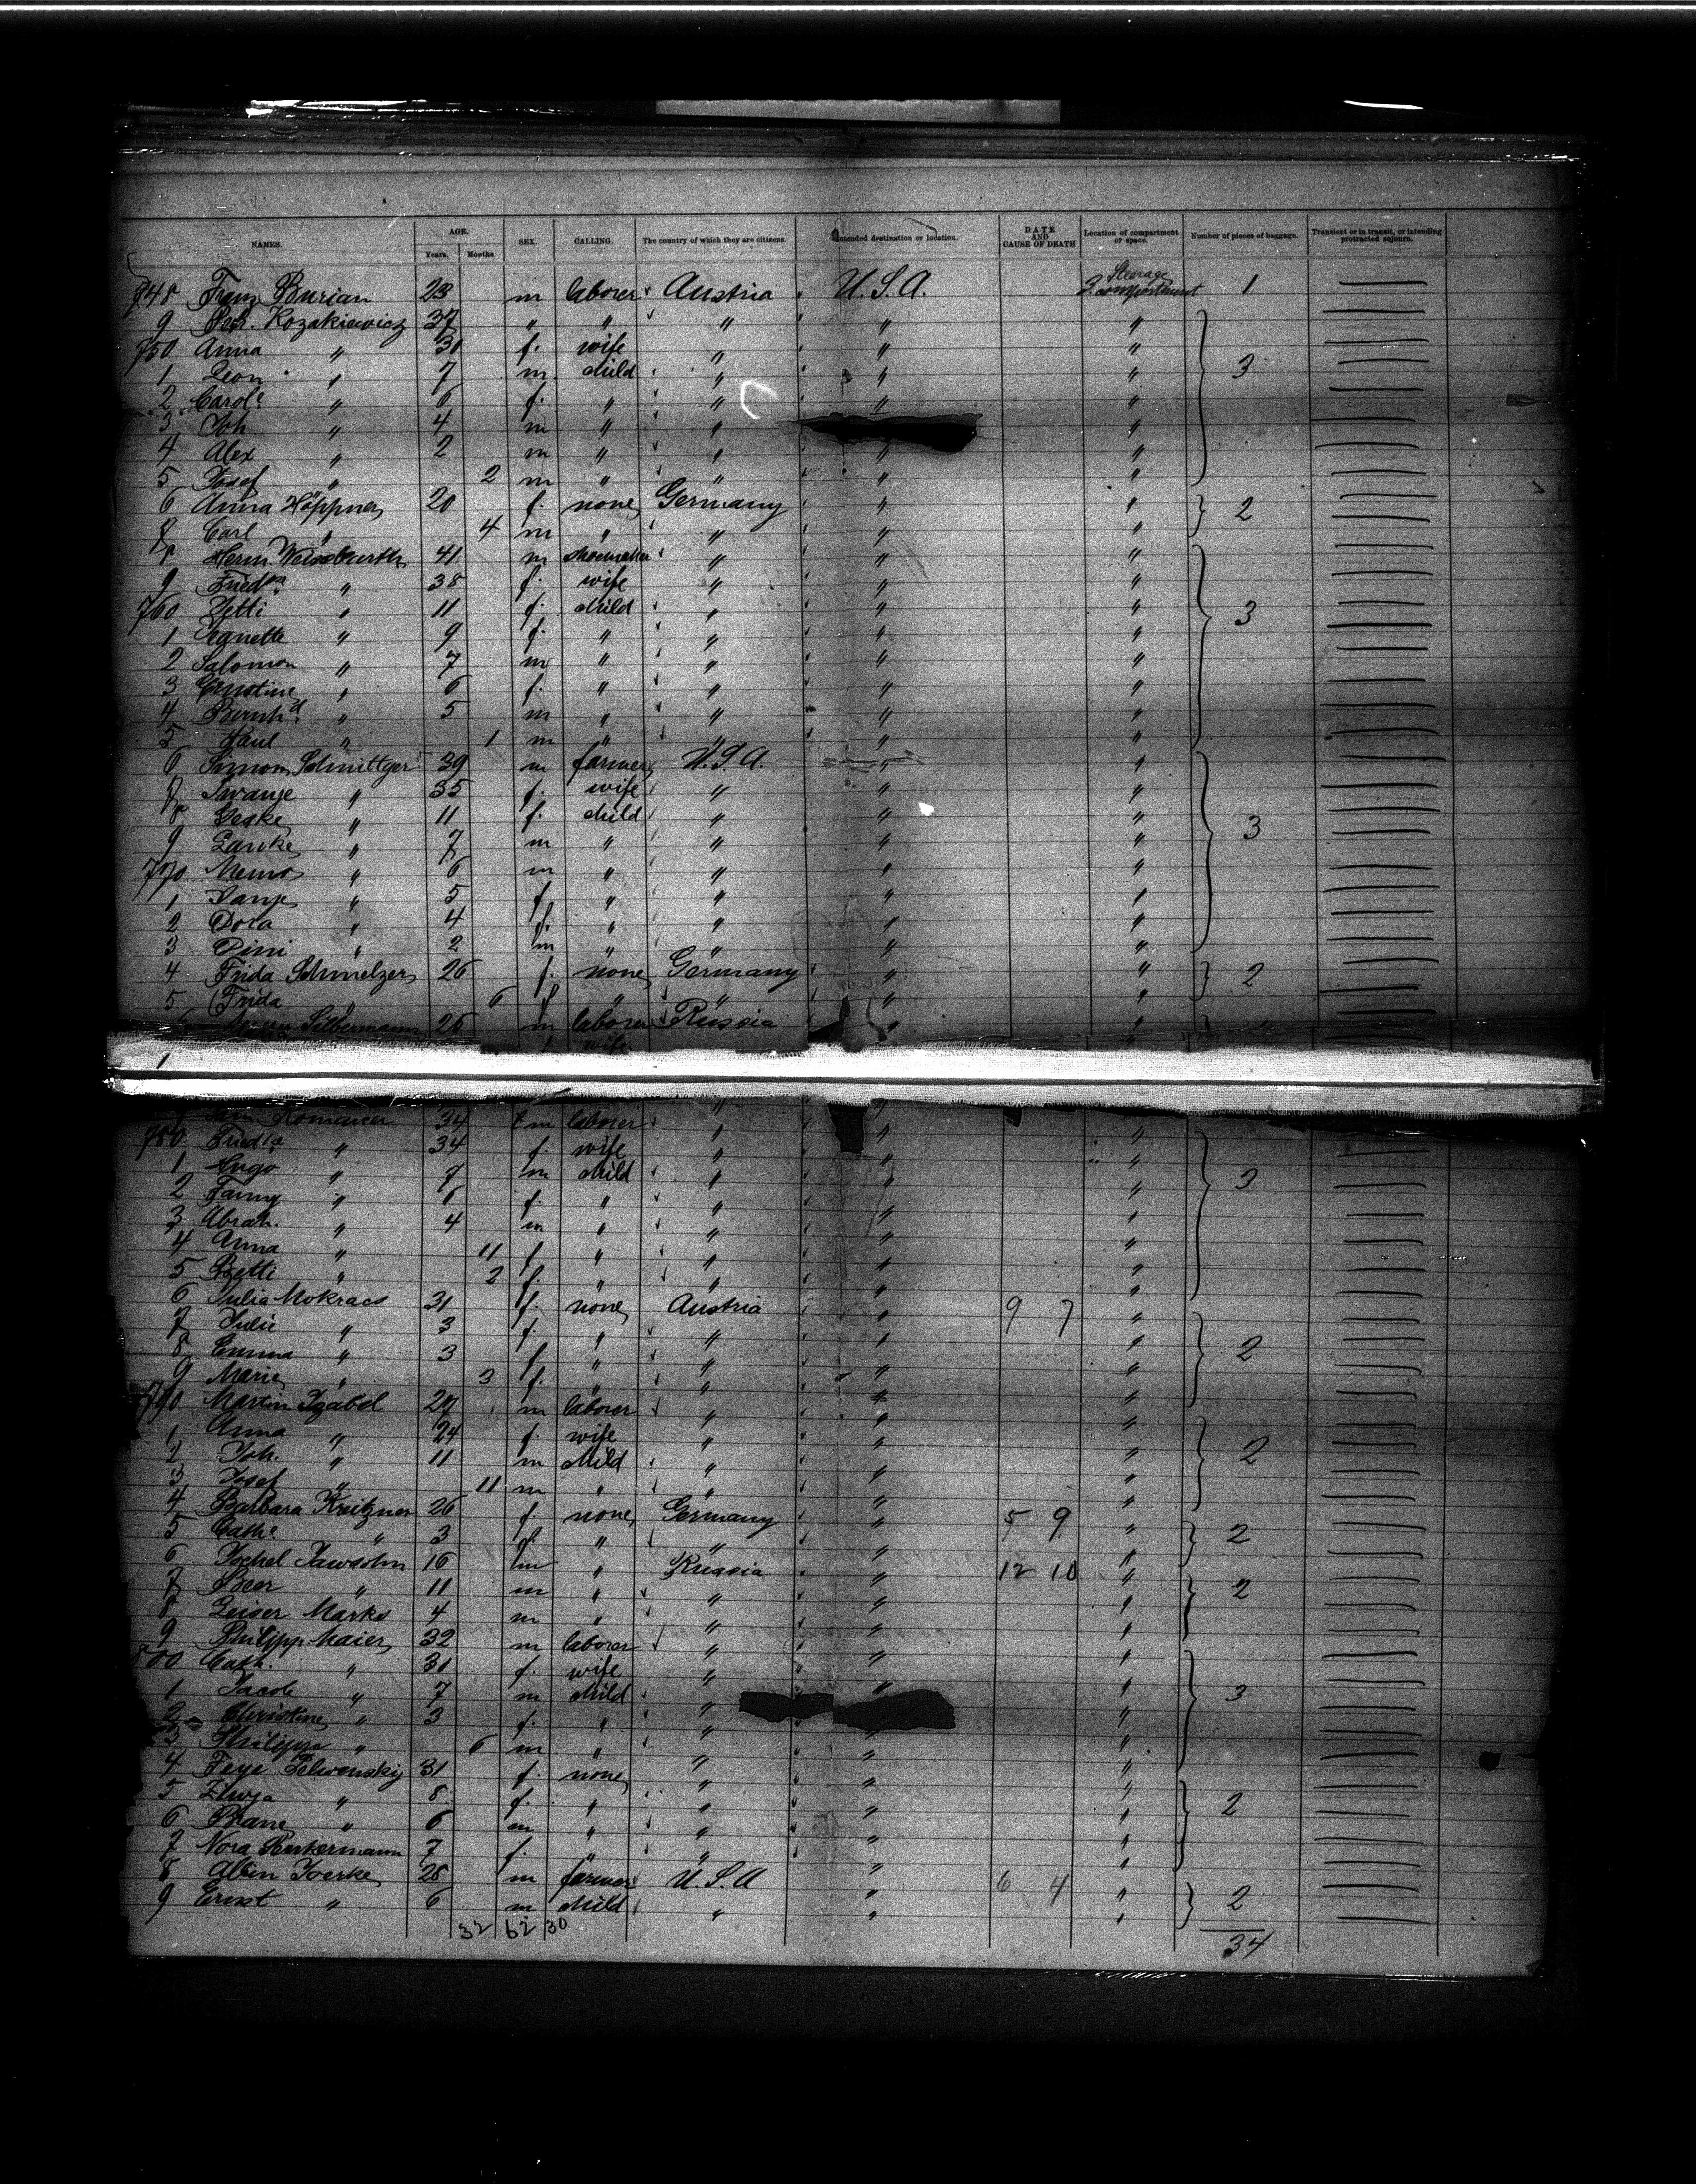 NAMES. AGE. Years. Months. SEX. CALLING. The country of which they are citizens. Intended destination or location. DATE AND CAUSE OF DEATH Location of compartment or space. Number of pieces of baggage. Transient or in transit, or intending protracted sojourn.
748 Franz Burian 23 m laborer Austria U.S.A. Steerage 2. compartment 1
9 Kozakiewicz 37 " " " " "
750 Anna " 31 f. wife " " "
1 Leon " 7 m child " " " 3
2 Carole " 6 f. " " " "
3 Joh " 4 m " " "
4 Alex " 2 m " " " "
5 Josef " 2 m " " " "
6 Anna Höppner 20 f. none Germany " " 2
7 Carl " 4 m " " " "
8 Herm Weissburth 41 m shoemaker " " "
9 Friedke " 38 f. wife " " "
760 Jetti " 11 f. child " " " 3
1 Jeanette " 9 f. " " " "
2 Salomon " 7 m " " " "
3 Ernstine " 6 f. " " " "
4 Bernhd " 5 m " " " "
5 Paul " 1 m " " " "
6 Simon Schmittger 39 m farmer U.S.A. " "
7 Swanje " 35 f. wife " " "
8 Geske " 11 f. child " " " 3
9 " 7 m " " " "
770 Memo " 6 m " " " "
1 " 5 f " " " "
2 Dora " 4 f. " " " "
3 Dini " 2 m " " " "
4 Frida Schmelzer 26 f. none Germany " " 2
5 Frida " 6 f " " " "
Silbermann 25 m laborer Russia " "
wife
34 m laborer " "
780 Friedke " 34 f. wife " " "
1 Hugo " 7 m child " " " 3
2 Fanny " 6 f. " " " "
3 Abrah. " 4 m " " " "
4 Anna " 11 f " " " "
5 Betti " 2 f. " " " "
6 Julia Mokracs 31 f. none Austria " 9 7 "
7 Julie " 3 f. " " " "
8 Emma " 3 f " " " " 2
9 Marie " 3 f. " " " "
790 Martin Izabel 27 m laborer " " "
1 Anna " 24 f. wife " " "
2 Joh. " 11 m child " " " 2
3 Josef " 11 m " " " "
4 Barbara Kreitzner 26 f. none Germany " 5 9 " 2
5 Cathe " 3 f. " " " "
6 16 m " Russia " 12 10 "
7 Beer " 11 m " " " " 2
8 Leiser Marks 4 m " " " "
9 Philipp Maier 32 m laborer " " "
800 Cath. " 31 f. wife " " "
1 Jacob " 7 m child " " " 3
2 Christine " 3 f. " " "
3 Philipp " 6 m " " " "
4 Feye 31 f. none " " "
5 " 8 f. " " " " 2
6 Brane " 6 m " " " "
7 Nora 7 f. " " " "
8 Albin Joerke 28 m farmer U.S.A " 6 4 "
9 Ernst " 6 m child " " " 2
32 62 30 34